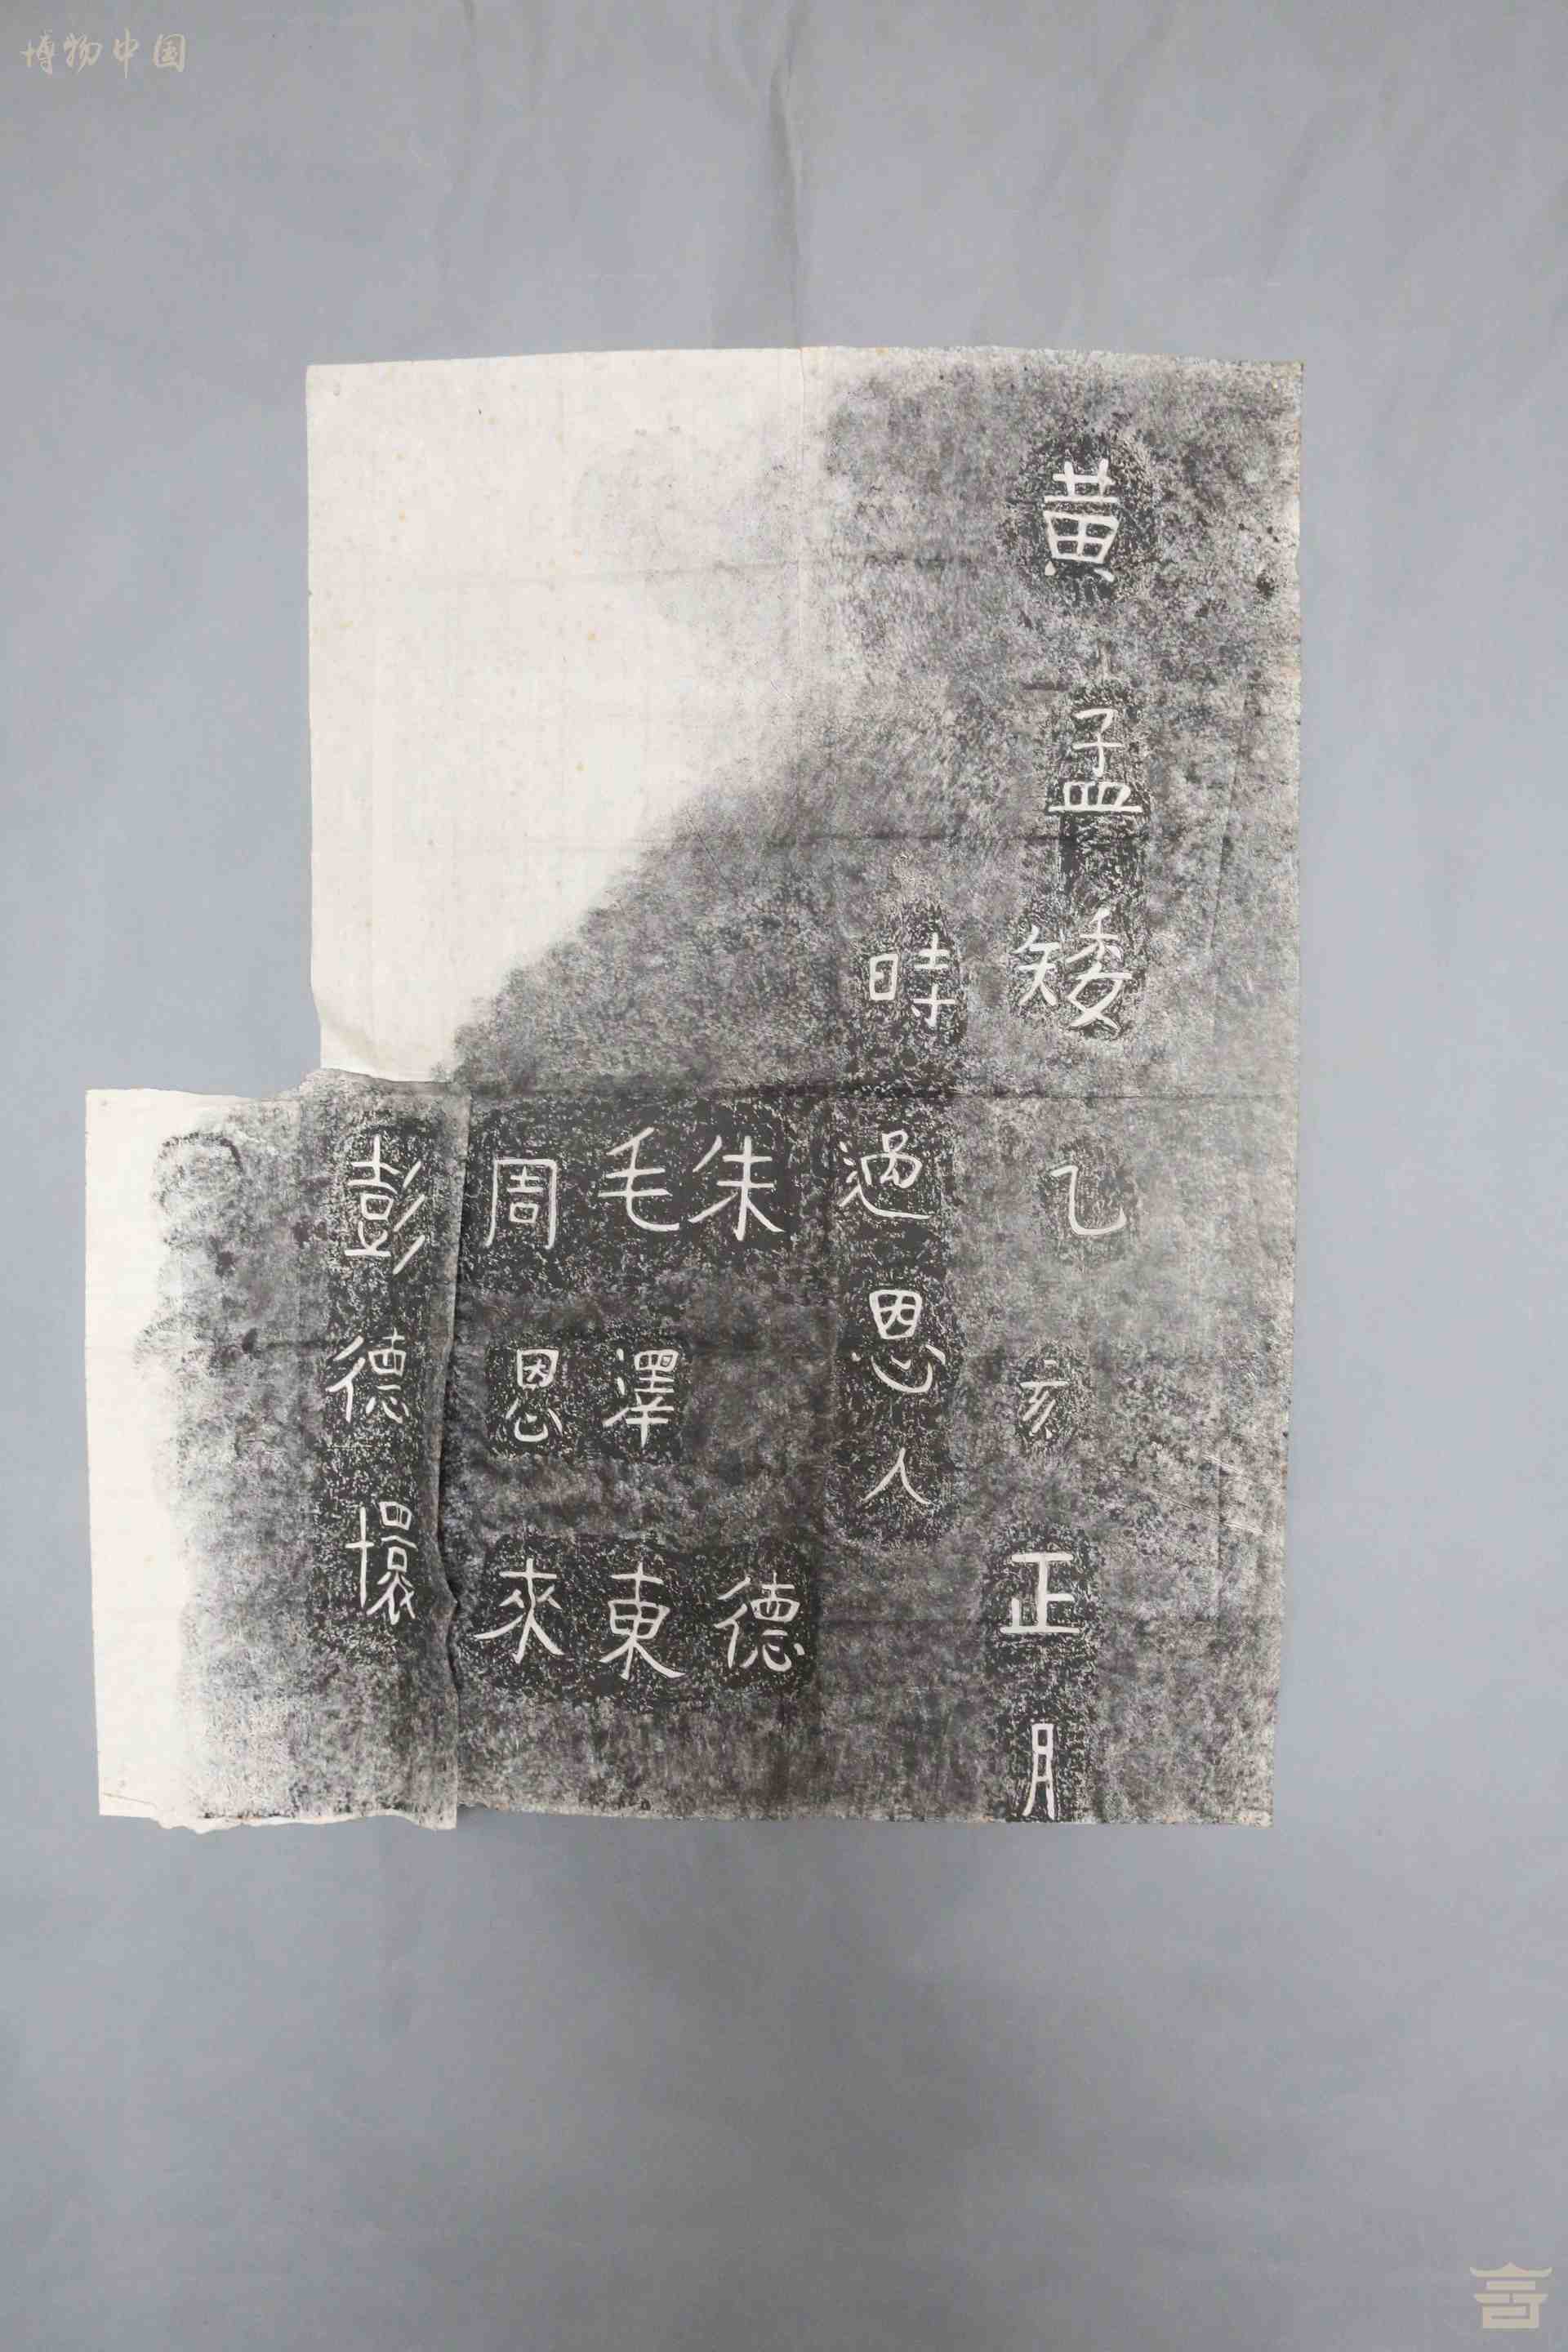 博物中国
黃孟矮乙亥正月
時遇恩人
朱德
毛澤東
周恩來
彭德懷